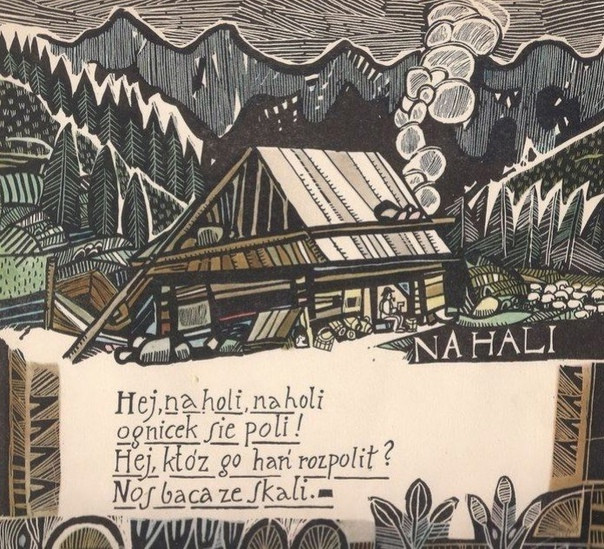 NA HALI
Hej, na holi, na holi
ognicek sie poli!
Hej, któz go hań rozpolit?
Nos baca ze skali.